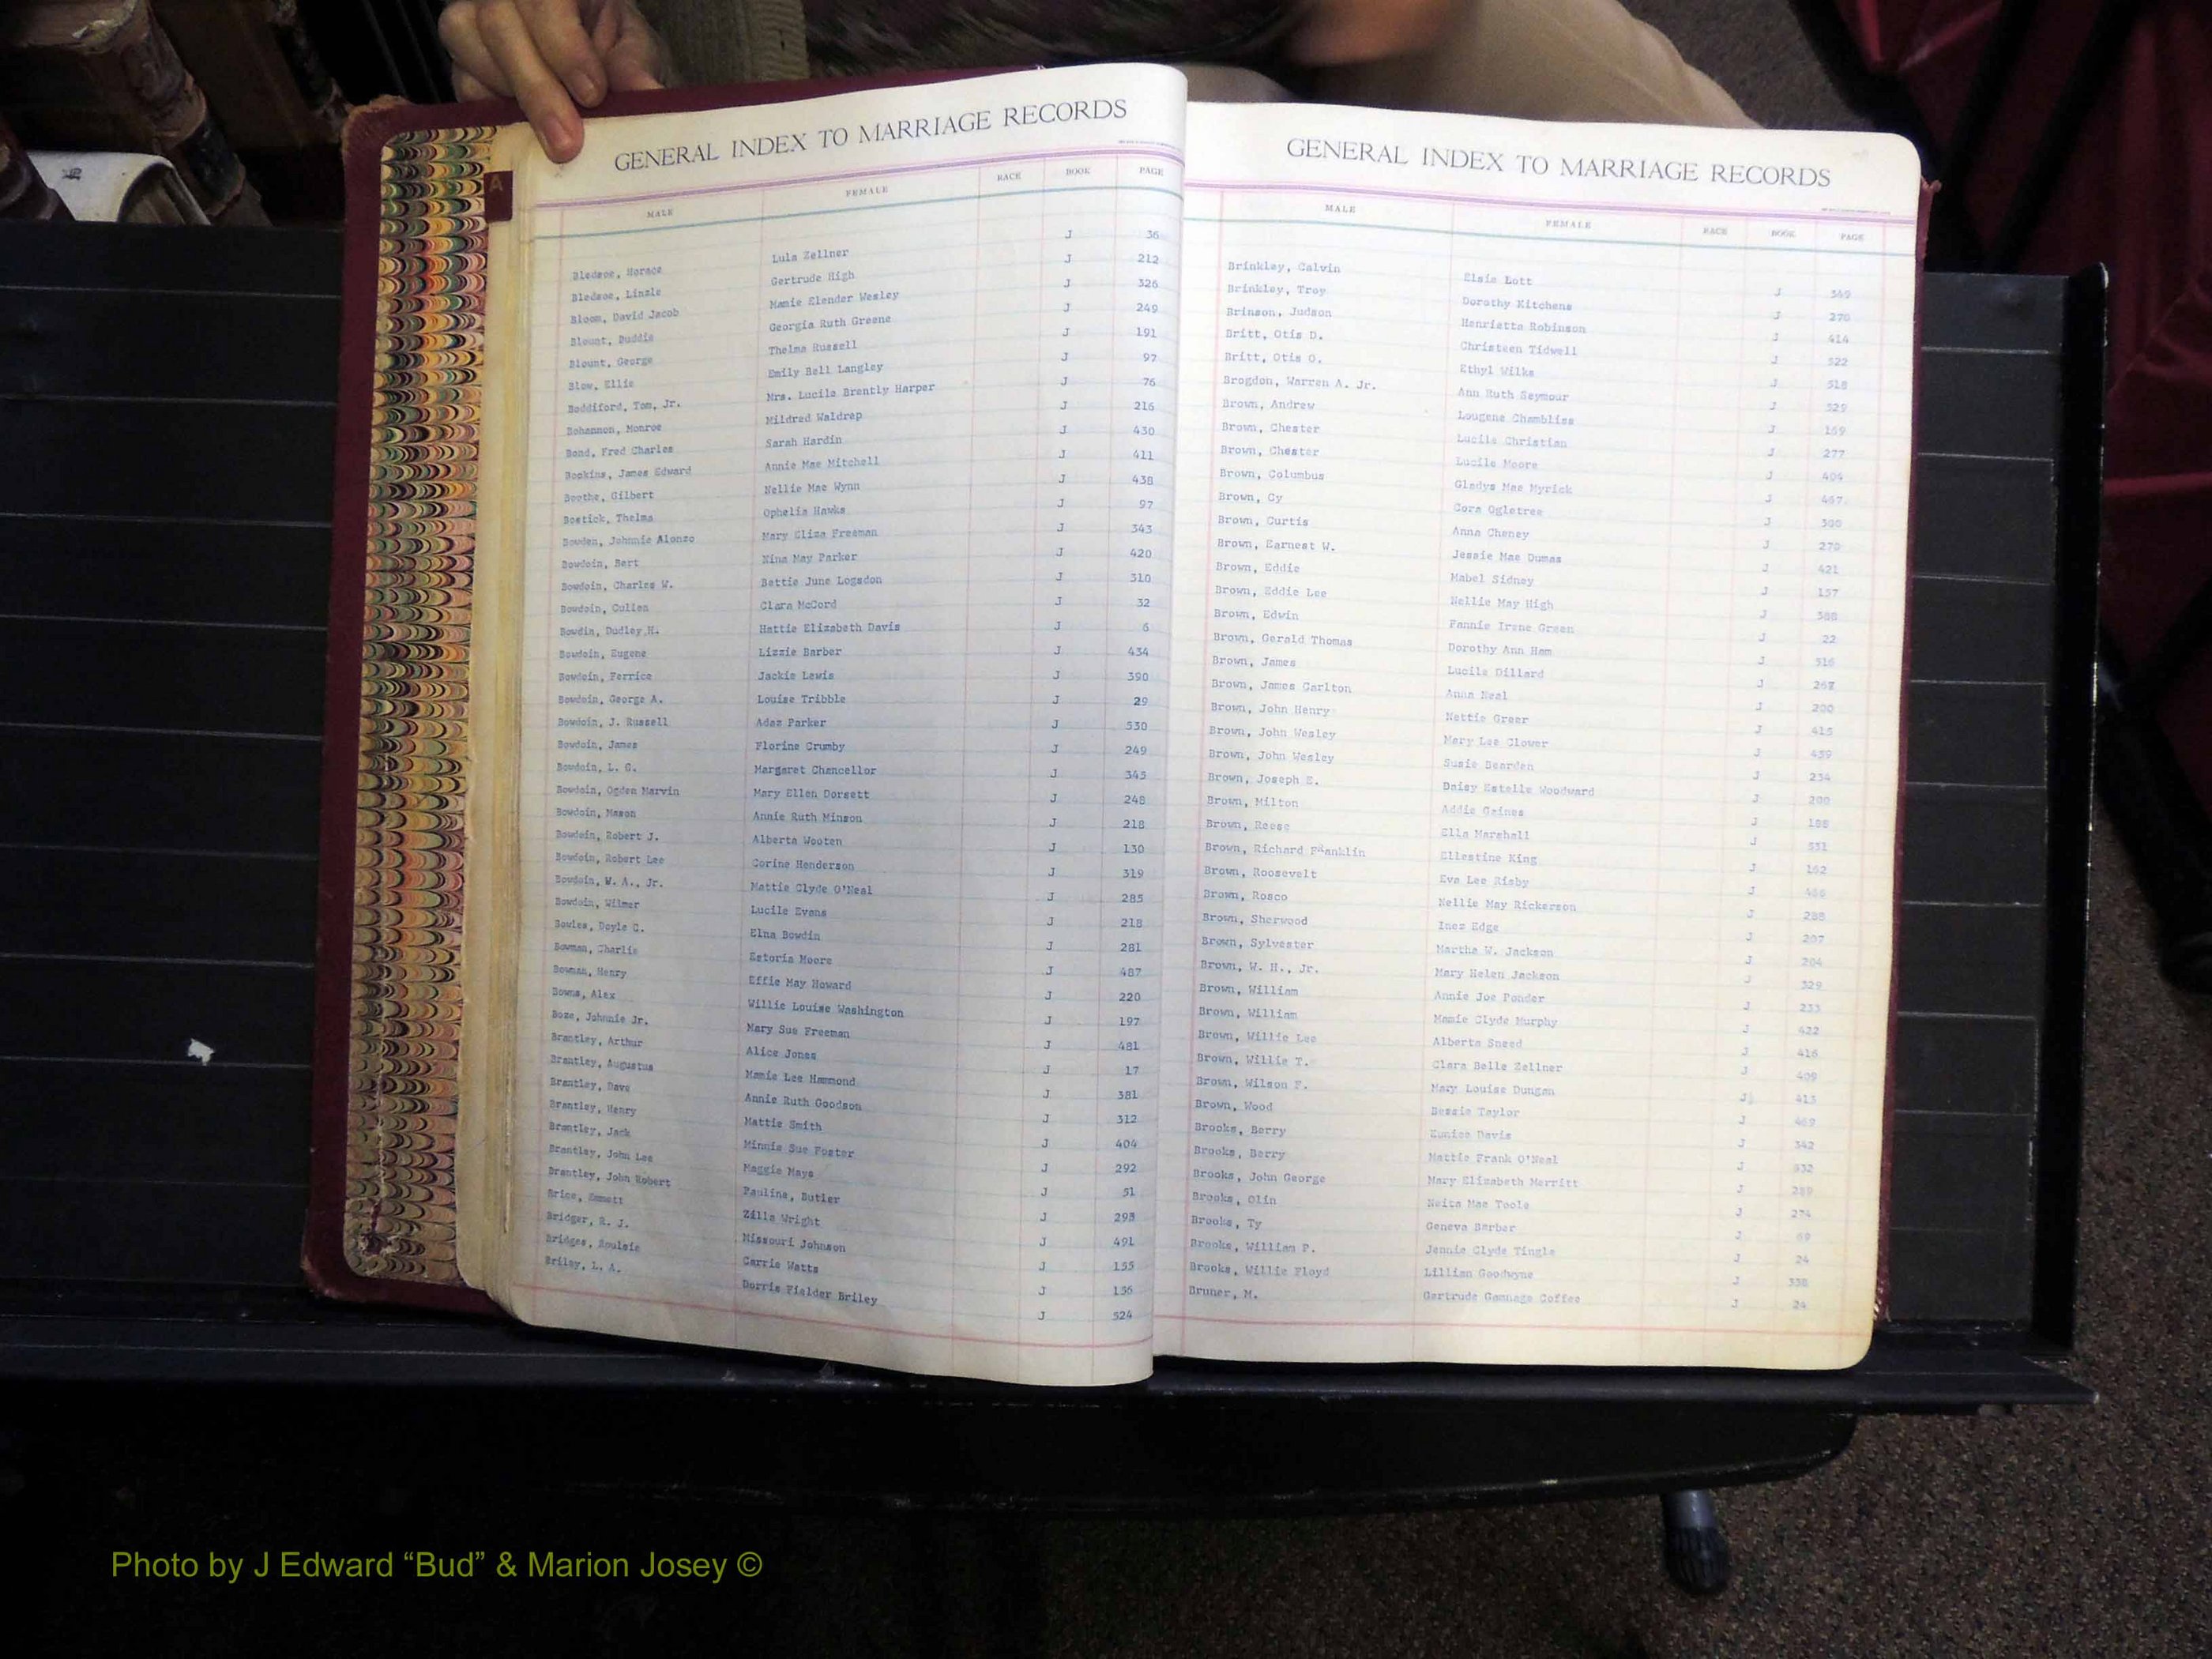 GENERAL INDEX TO MARRIAGE RECORDS
MALE FEMALE RACE BOOK PAGE
Bledsoe, Horace Lula Zellner J 36
Bledsoe, Linzie Gertrude High J 212
Bloom, David Jacob Mamie Elender Wesley J 326
Blount, Buddie Georgia Ruth Greene J 249
Blount, George Thelma Russell J 191
Blow, Ellie Emily Bell Langley J 97
Boddiford, Tom, Jr. Mrs. Lucile Brently Harper J 76
Bohannon, Monroe Mildred Waldrep J 216
Bond, Fred Charles Sarah Hardin J 430
Bookins, James Edward Annie Mae Mitchell J 411
Boothe, Gilbert Nellie Mae Wynn J 438
Bostick, Thelma Ophelia Hawks J 97
Bowden, Johnnie Alonzo Mary Cliza Freeman J 343
Bowdoin, Bert Nina May Parker J 420
Bowdoin, Charles W. Bettie June Logsdon J 310
Bowdoin, Cullen Clara McCord J 32
Bowdin, Dudley H. Hattie Elizabeth Davis J 6
Bowdoin, Eugene Lizzie Barber J 434
Bowdoin, Ferrice Jackie Lewis J 390
Bowdoin, George A. Louise Tribble J 29
Bowdoin, J. Russell Adaz Parker J 530
Bowdoin, James Florine Crumby J 249
Bowdoin, L. G. Margaret Chancellor J 345
Bowdoin, Ogden Marvin Mary Ellen Dorsett J 248
Bowdoin, Mason Annie Ruth Minson J 218
Bowdoin, Robert J. Alberta Wooten J 130
Bowdoin, Robert Lee Corine Henderson J 319
Bowdoin, W. A., Jr. Mattie Clyde O'Neal J 285
Bowdoin, Wilmer Lucile Evans J 218
Bowles, Doyle C. Elna Bowdin J 281
Bowman, Charlie Estoria Moore J 487
Bowman, Henry Effie May Howard J 220
Bowns, Alex Willie Louise Washington J 197
Boze, Johnnie Jr. Mary Sue Freeman J 481
Brantley, Arthur Alice Jones J 17
Brantley, Augustus Mamie Lee Hammond J 381
Brantley, Dave Annie Ruth Goodson J 312
Brantley, Henry Mattie Smith J 404
Brantley, Jack Minnie Sue Foster J 292
Brantley, John Lee Maggie Mays J 51
Brantley, John Robert Pauline, Butler J 298
Brice, Emmett Zilla Wright J 491
Bridger, R. J. Missouri Johnson J 155
Bridges, Carrie Watts J 156
Briley, L. A. Dorris Fielder Briley J 524
GENERAL INDEX TO MARRIAGE RECORDS
MALE FEMALE RACE BOOK PAGE
Brinkley, Calvin Elsie Lott J 349
Brinkley, Troy Dorothy Kitchens J 270
Brinson, Judson Henrietta Robinson J 414
Britt, Otis D. Christeen Tidwell J 522
Britt, Otis O. Ethyl Wilks J 518
Brogdon, Warren A. Jr. Ann Ruth Seymour J 529
Brown, Andrew Lougene Chambliss J 169
Brown, Chester Lucile Christian J 277
Brown, Chester Lucile Moore J 404
Brown, Columbus Gladys Mae Myrick J 467
Brown, Cy Cora Ogletree J 300
Brown, Curtis Anna Cheney J 279
Brown, Earnest W. Jessie Mae Dumas J 421
Brown, Eddie Mabel Sidney J 157
Brown, Eddie Lee Nellie May High J 388
Brown, Edwin Fannie Irene Green J 22
Brown, Gerald Thomas Dorothy Ann Ham J 516
Brown, James Lucile Dillard J 267
Brown, James Carlton Anna Neal J 200
Brown, John Henry Nettie Greer J 415
Brown, John Wesley Mary Lee Clower J 459
Brown, John Wesley Susie Bearden J 234
Brown, Joseph E. Daisy Estelle Woodward J 200
Brown, Milton Addie Gaines J 188
Brown, Reese Ella Marshall J 551
Brown, Richard Franklin Ellestine King J 162
Brown, Roosevelt Eva Lee Risby J
Brown, Rosco Nellie May Rickerson J 288
Brown, Sherwood Inez Edge J 207
Brown, Sylvester Martha W. Jackson J 204
Brown, W. H., Jr. Mary Helen Jackson J 329
Brown, William Annie Joe Ponder J 233
Brown, William Mamie Clyde Murphy J 422
Brown, Willie Lee Alberta Sneed J 416
Brown, Willie T. Clara Belle Zellner J 409
Brown, Wilson F. Mary Louise Dungan J 413
Brown, Wood Bessie Taylor J 469
Brooks, Berry Eunice Davis J 342
Brooks, Berry Mattie Frank O'Neal J 532
Brooks, John George Mary Elizabeth Merritt J 289
Brooks, Olin Neita Mae Toole J 274
Brooks, Ty Geneva Barber J 69
Brooks, William F. Jennie Clyde Tingle J 24
Brooks, Willie Floyd Lillian Goodwyne J 338
Bruner, M. Gertrude Gammage Coffee J 24
A
Photo by J Edward “Bud” & Marion Josey ©